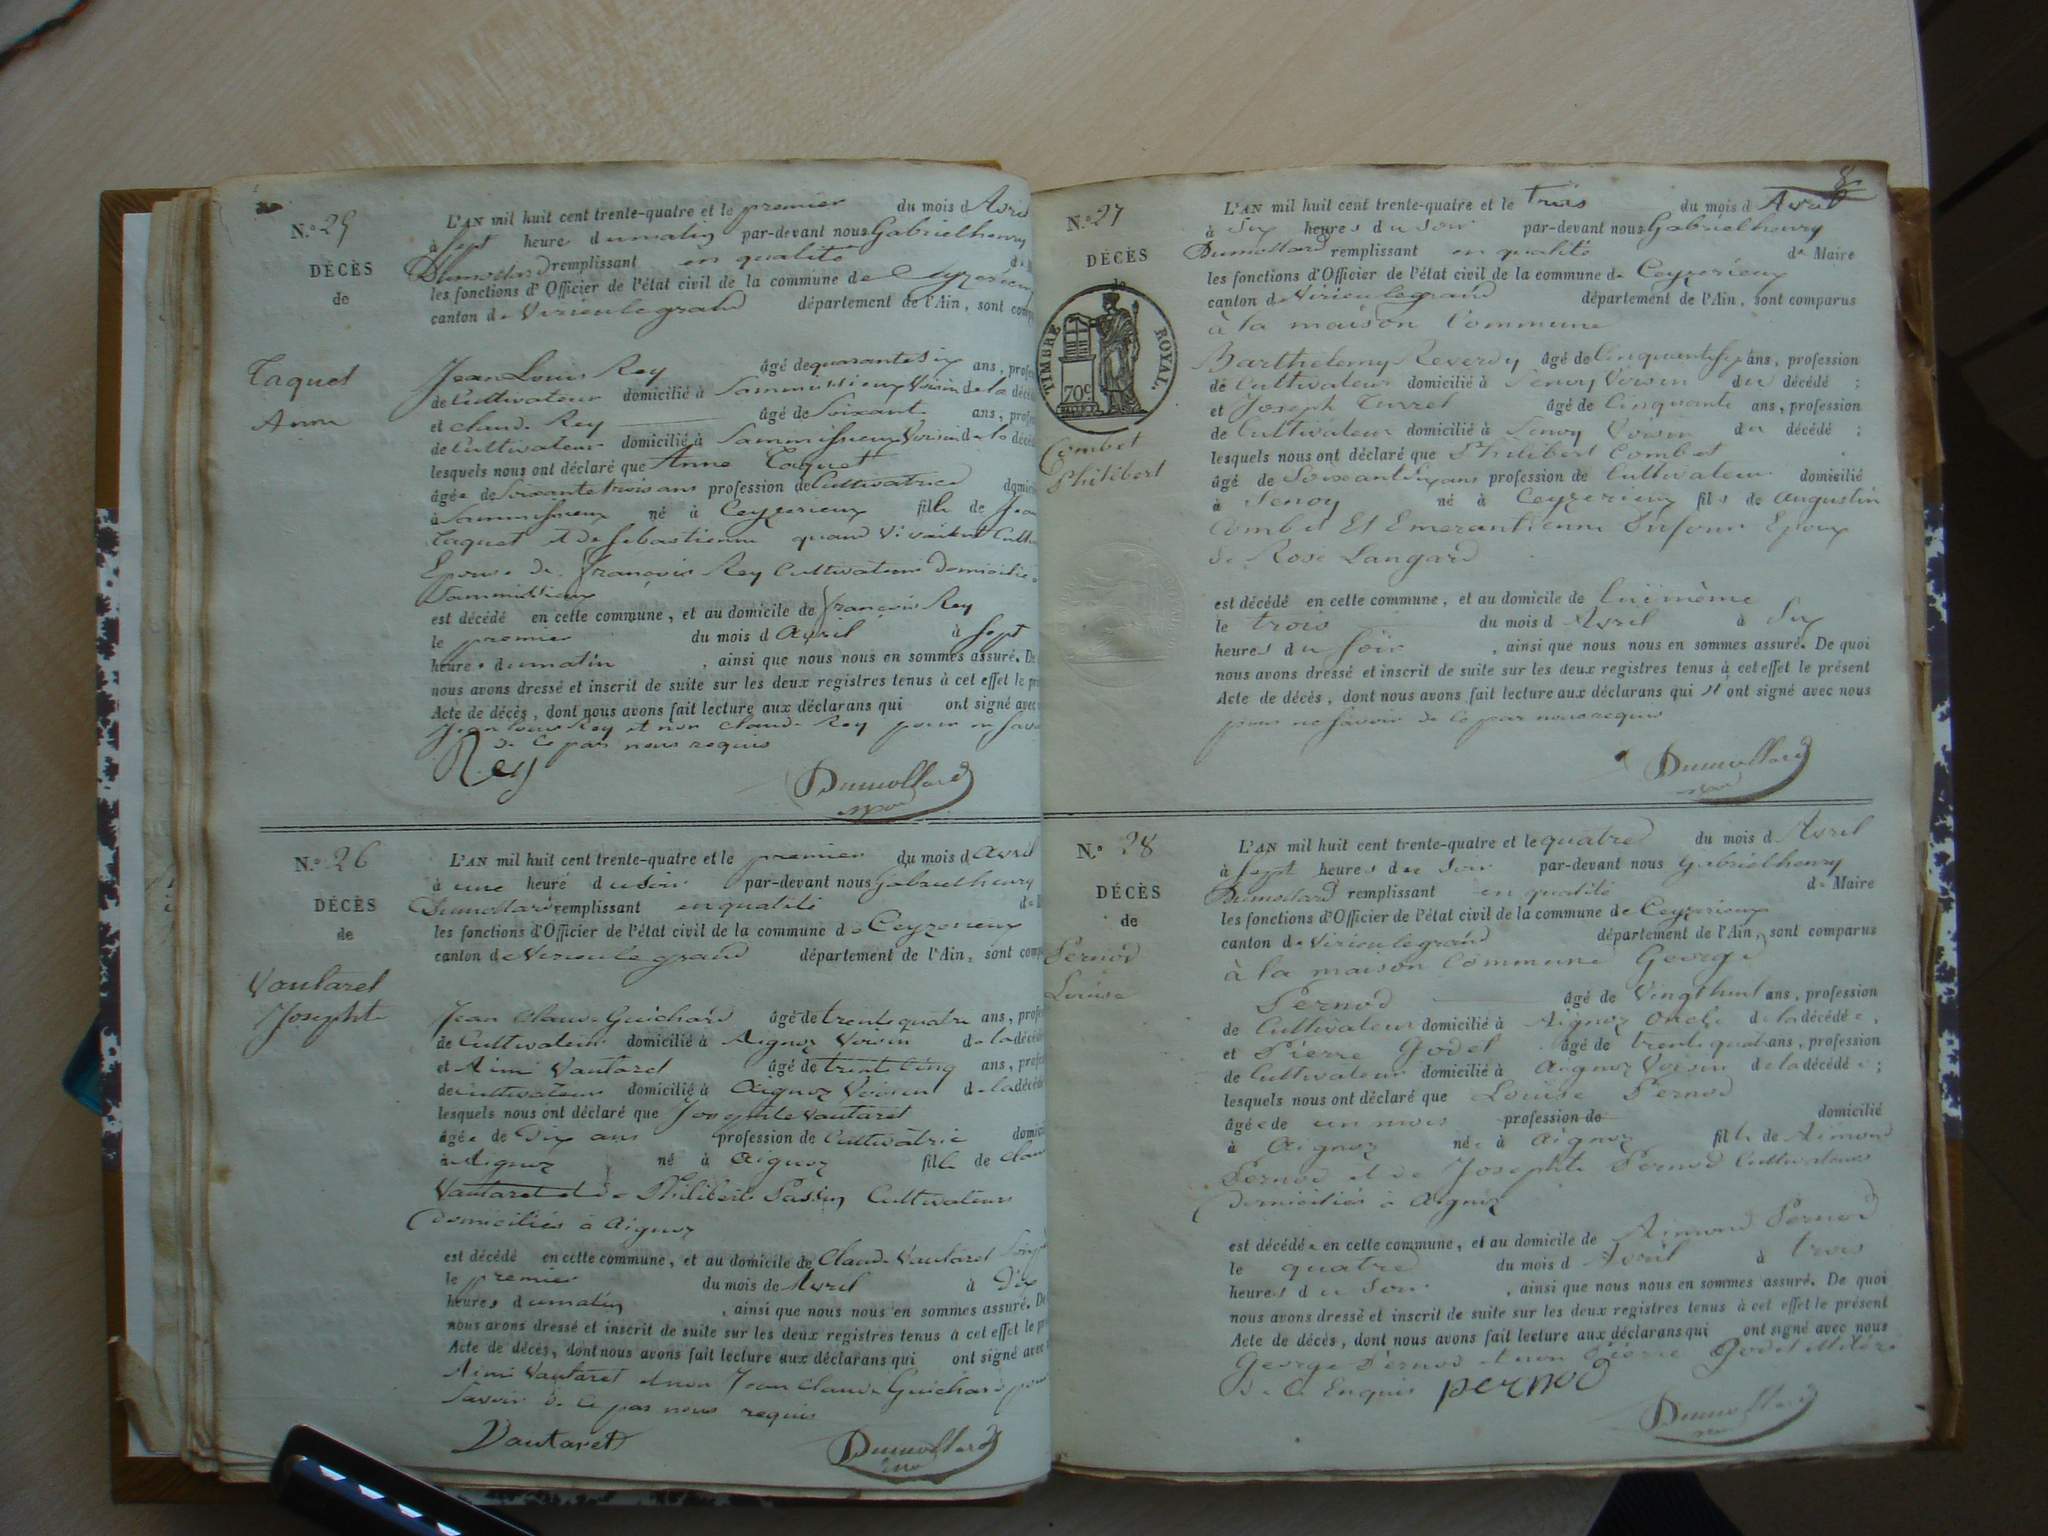 N.º 25
DÉCÈS
de
Taquet
Anne
L'AN mil huit cent trente-quatre et le premier du mois d Avril
à Sept heure du matin par-devant nous Gabriel henry
Dumollard remplissant en qualité de
les fonctions d'Officier de l'état civil de la commune de Ceyzerieux
canton de Virieu le grand département de l'Ain, sont
Jean Louis Rey âgé de quarante Six ans,
de Cultivateur domicilié à Sammissieux Voisin de la
et Claude Rey âgé de Soixante ans,
de Cultivateur domicilié à Sammissieux Voisin de la
lesquels nous ont déclaré que Anne Taquet
âgée de Soixante trois ans profession de Cultivatrice
à Sammissieux né à Ceyzerieux fille de
Taquet et de Sebastienne quand Vivait
Epouse de françois Rey Cultivateur Domicilié
Sammissieux
est décédé en cette commune, et au domicile de françois Rey
le premier du mois d avril à Sept
heures du matin, ainsi que nous nous en sommes assuré. De
nous avons dressé et inscrit de suite sur les deux registres tenus à cet effet le
Acte de décès, dont nous avons fait lecture aux déclarans qui ont signé avec
Jean Louis Rey et non Claude Rey pour ne
de ce par nous requis
Rey
Dumollard
N.º 26
DÉCÈS
de
Vautaret
Josephte
L'AN mil huit cent trente-quatre et le premier du mois d avril
à une heure du Soir par-devant nous Gabriel henry
Dumollard remplissant en qualité de
les fonctions d'Officier de l'état civil de la commune de Ceyzerieux
canton de Virieu le grand département de l'Ain, sont
Jean Claude Guichard âgé de trente quatre ans,
de Cultivateur domicilié à Aignoz Voisin de la
et Aimé Vautaret âgé de trente Cinq ans,
de Cultivateur domicilié à Aignoz Voisin de la
lesquels nous ont déclaré que Josephte Vautaret
âgée de Dix ans profession de Cultivatrice
à Aignoz né à Aignoz fille de
Vautaret et de Philiberte Passin Cultivateurs
domiciliés à Aignoz
est décédé en cette commune, et au domicile de Claude Vautaret
le premier du mois de Avril à Dix
heures du matin, ainsi que nous nous en sommes assuré. De
nous avons dressé et inscrit de suite sur les deux registres tenus à cet effet le
Acte de décès, dont nous avons fait lecture aux déclarans qui ont signé avec
Aimé Vautaret et non Jean Claude Guichard pour
Savoir de ce par nous requis
Vautaret
Dumollard
8
N.º 27
DÉCÈS
de
TIMBRE ROYAL.
70c
Combet
Philibert
L'AN mil huit cent trente-quatre et le trois du mois d Avril
à Six heures du Soir par-devant nous Gabriel henry
Dumollard remplissant en qualité de Maire
les fonctions d'Officier de l'état civil de la commune de Ceyzerieux
canton de Virieu le grand département de l'Ain, sont comparus
à la maison Commune
Barthelemy Reverdy âgé de Cinquante ans, profession
de Cultivateur domicilié à Senoy Voisin du décédé ;
et Joseph Turrel âgé de Cinquante ans, profession
de Cultivateur domicilié à Senoy Voisin du décédé ;
lesquels nous ont déclaré que Philibert Combet
âgé de Soixante ans profession de Cultivateur domicilié
à Senoy né à Ceyzerieux fils de augustin
Combet Et Emerantienne Dufour Epoux
de Rose Langard
est décédé en cette commune, et au domicile de lui même
le trois du mois d Avril à Six
heures du Soir, ainsi que nous nous en sommes assuré. De quoi
nous avons dressé et inscrit de suite sur les deux registres tenus à cet effet le présent
Acte de décès, dont nous avons fait lecture aux déclarans qui n'ont signé avec nous
pour ne Savoir de ce par nous requis
Dumollard
N.º 28
DÉCÈS
de
Pernod
Louise
L'AN mil huit cent trente-quatre et le quatre du mois d Avril
à Sept heures du Soir par-devant nous Gabriel henry
Dumollard remplissant en qualité de Maire
les fonctions d'Officier de l'état civil de la commune de Ceyzerieux
canton de Virieu le grand département de l'Ain, sont comparus
à la maison Commune George
Pernod âgé de Vingt huit ans, profession
de Cultivateur domicilié à Aignoz Oncle de la décédée,
et Pierre Godet âgé de trente quatre ans, profession
de Cultivateur domicilié à Aignoz Voisin de la décédée ;
lesquels nous ont déclaré que Louise Pernod
âgée de un mois profession de domicilié
à Aignoz née à Aignoz fille de Aimond
Pernod et de Josephte Pernod Cultivateurs
domiciliés à Aignoz
est décédée en cette commune, et au domicile de Aimond Pernod
le quatre du mois d Avril à trois
heures du Soir, ainsi que nous nous en sommes assuré. De quoi
nous avons dressé et inscrit de suite sur les deux registres tenus à cet effet le présent
Acte de décès, dont nous avons fait lecture aux déclarans qui ont signé avec nous
George Pernod et non Pierre Godet
de Ce Enquis pernod
Dumollard